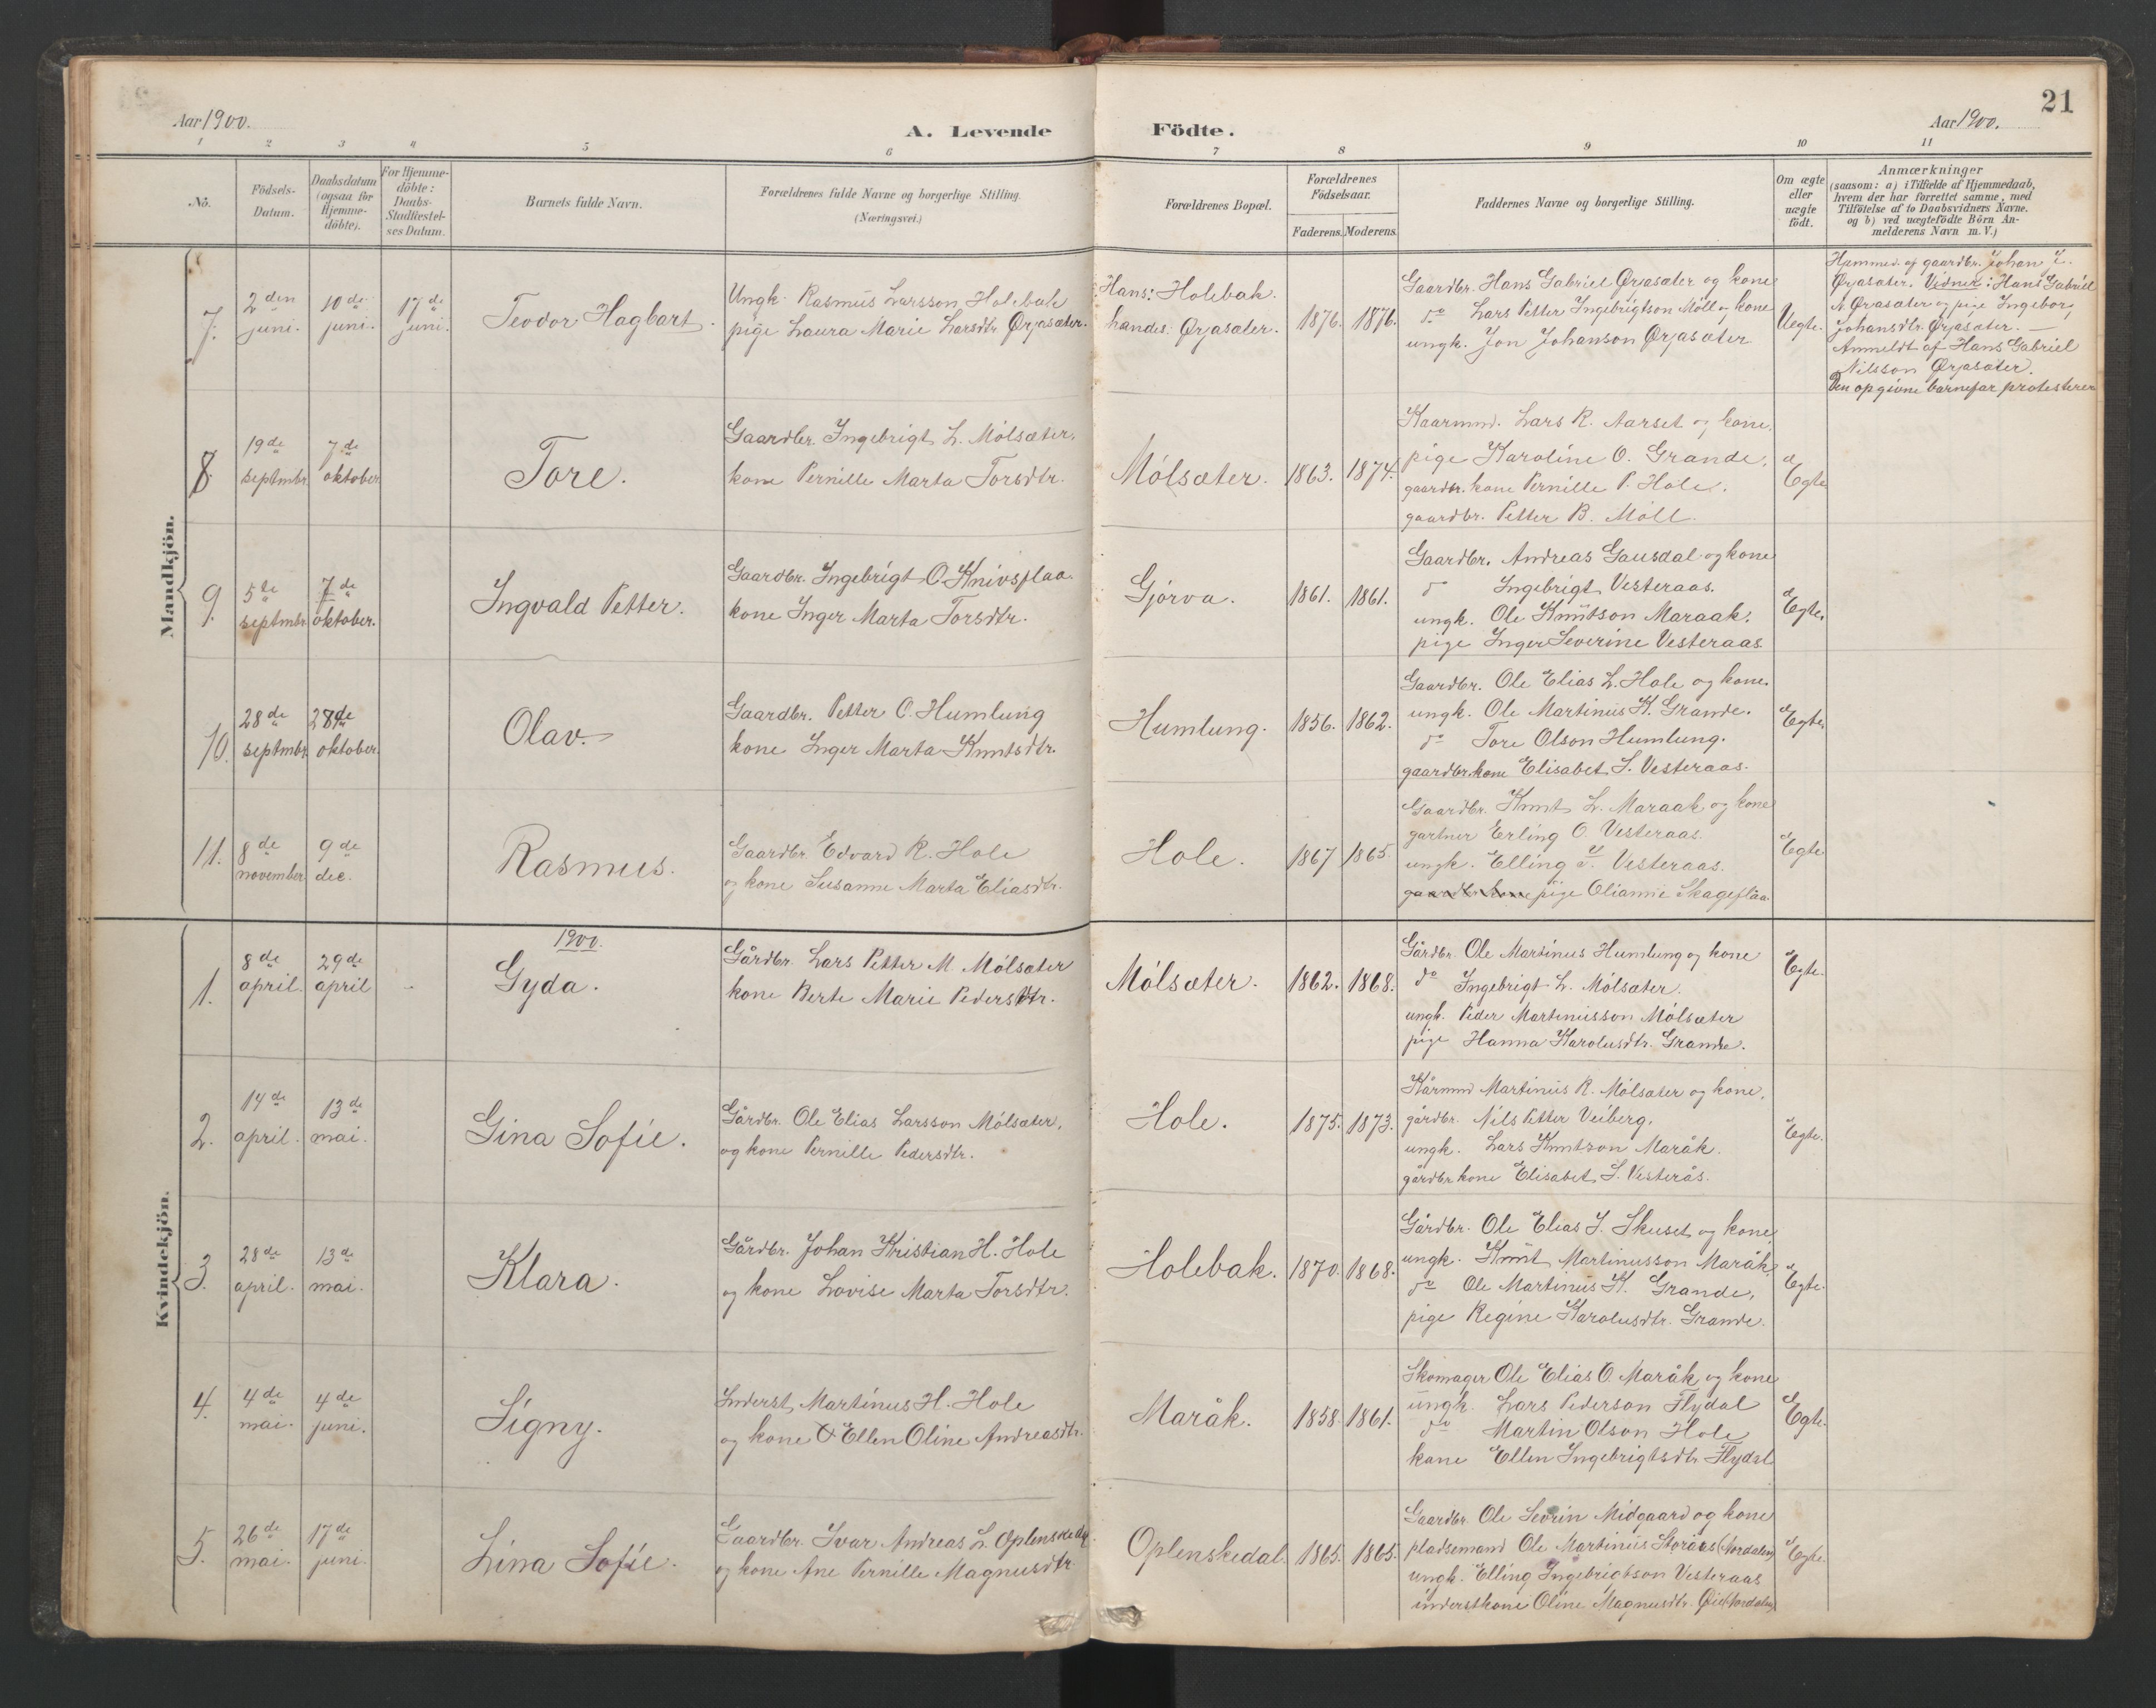 21
Aar 1900.
A. Levende Födte.
Aar 1900.
1 2 3 4 5 6 7 8 9 10 11
No.
Födsels-Datum.
Daabsdatum (ogsaa for Hjemme-döbte).
For Hjemme-döbte: Daabs-Stadfæstel-ses Datum.
Barnets fulde Navn.
Forældrenes fulde Navne og borgerlige Stilling.
(Næringsvei.)
Forældrenes Bopæl.
Forældrenes Födselsaar.
Faderens. Moderens.
Faddernes Navne og borgerlige Stilling.
Om ægte eller uægte födt.
Anmærkninger
(saasom: a) i Tilfælde af Hjemmedaab,
hvem der har forrettet samme, med
Tilföielse af to Daabsvidners Navne.
og b) ved uægtefödte Börn An-
melderens Navn m. V.)
Mandkjön.
7. 2den juni. 10de juni. 17de juni. Teodor Hagbart.
Ungk. Rasmus Larsson Holebak
pige Laura Marie Larsdtr. Ørjasæter.
Hans: Holebak.
handes: Ørjasæter.
1876. 1876.
Gaardbr. Hans Gabriel Ørjasæter og kone
do Lars Petter Ingebrigtson Möll og kone
ungk. Jon Johanson Ørjasæter
Uegte.
Hjemmed. af gaardbr. Johan L.
Ørjasæter. Vidner: Hans Gabriel
N. Ørjasæter og pige Ingebor,
Johansdtr. Ørjasæter. —
Anmeldt af Hans Gabriel
Nilsson Ørjasæter.
Den opgivne barnefar protesterer
8. 19de septmbr 7de oktober Tore.
Gaardbr. Ingebrigt L. Mölsæter.
kone Pernille Marta Torsdtr.
Mölsæter. 1863. 1874.
Kaarmnd. Lars R. Aarset og kone,
pige Karoline O. Grande,
gaardbr. kone Pernille P. Hole.
gaardbr. Petter B. Möll.
Egte
9. 5te septmbr 7de oktober. Ingvald Petter.
Gaardbr. Ingebrigt O. Knivsflaa.
kone Inger Marta Torsdtr.
Gjörva. 1861. 1861.
Gaardbr. Andreas Gausdal og kone
do Ingebrigt Vesteraas.
ungk. Ole Knutson Maraak.
pige Inger Severine Vesteraas.
Egte.
10. 28de septmbr 28de oktober. Olav.
Gaardbr. Petter O. Humlung
kone Inger Marta Knutsdtr.
Humlung. 1856. 1862.
Gaardbr. Ole Elias L. Hole og kone.
ungk. Ole Martinus K. Grande.
do Tore Olson Humlung.
gaardbr. kone Elisabet S. Vesteraas.
Egte
11. 8de november 9de dec. Rasmus.
Gaardbr. Edvard R. Hole
og kone Susanne Marta Eliasdtr.
Hole. 1867 1865.
Gaardbr. Knut L. Maraak og kone
gartner Erling O. Vesteraas.
ungk. Elling I. Vesteraas.
gaardbr. kone pige Olianne Skageflaa.
Egte
Kvindekjön.
1900.
1. 8de april. 29de april Gyda.
Gårdbr. Lars Petter M. Mölsæter
kone Berte Marie Pedersdtr.
Mölsæter. 1862. 1868.
Gårdbr. Ole Martinus Humlung og kone
do Ingebrigt L. Mölsæter.
ungk. Peder Martinusson Mölsæter
pige Hanna Karolusdtr. Grande.
Egte.
2. 14de april. 13de mai. Gina Sofie.
Gårdbr. Ole Elias Larsson Mölsæter,
og kone Pernille Pedersdtr.
Hole. 1875. 1873.
Kårmnd Martinus R. Mölsæter og kone,
gårdbr. Nils Petter Veiberg.
ungk. Lars Knutson Maråk.
gårdbr kone Elisabet S. Vesterås.
Egte.
3. 28de april. 13de mai. Klara.
Gårdbr. Johan Kristian H. Hole
og kone Lovise Marta Torsdtr.
Holebak. 1870. 1868.
Gårdbr. Ole Elias J. Skuset og kone
ungk. Knut Martinusson Maråk,
do Ole Martinus K. Grande,
pige Regine Karolusdtr. Grande.
Egte.
4. 4de mai. 4de juni. Signy.
Inderst Martinus H. Hole
og kone Ellen Oline Andreasdtr.
Maråk. 1858. 1861.
Skomager Ole Elias O. Maråk og kone
ungk. Lars Pederson Flydal
do Martin Olson Hole
kone Ellen Ingebrigtsdtr Flydal
Egte.
5. 26de mai. 17de juni. Lina Sofie.
Gaardbr. Ivar Andreas L. Oplenskedal
og kone Ane Pernille Magnusdtr
Oplenskedal 1865. 1865.
Gaardbr. Ole Sevrin Midgaard og kone
pladsemand Ole Martinus Storaas (Nordalen)
ungk. Elling Ingebrigtson Vesteraas
inderstkone Oline Magnusdtr. Øie (Nordalen)
Egte.